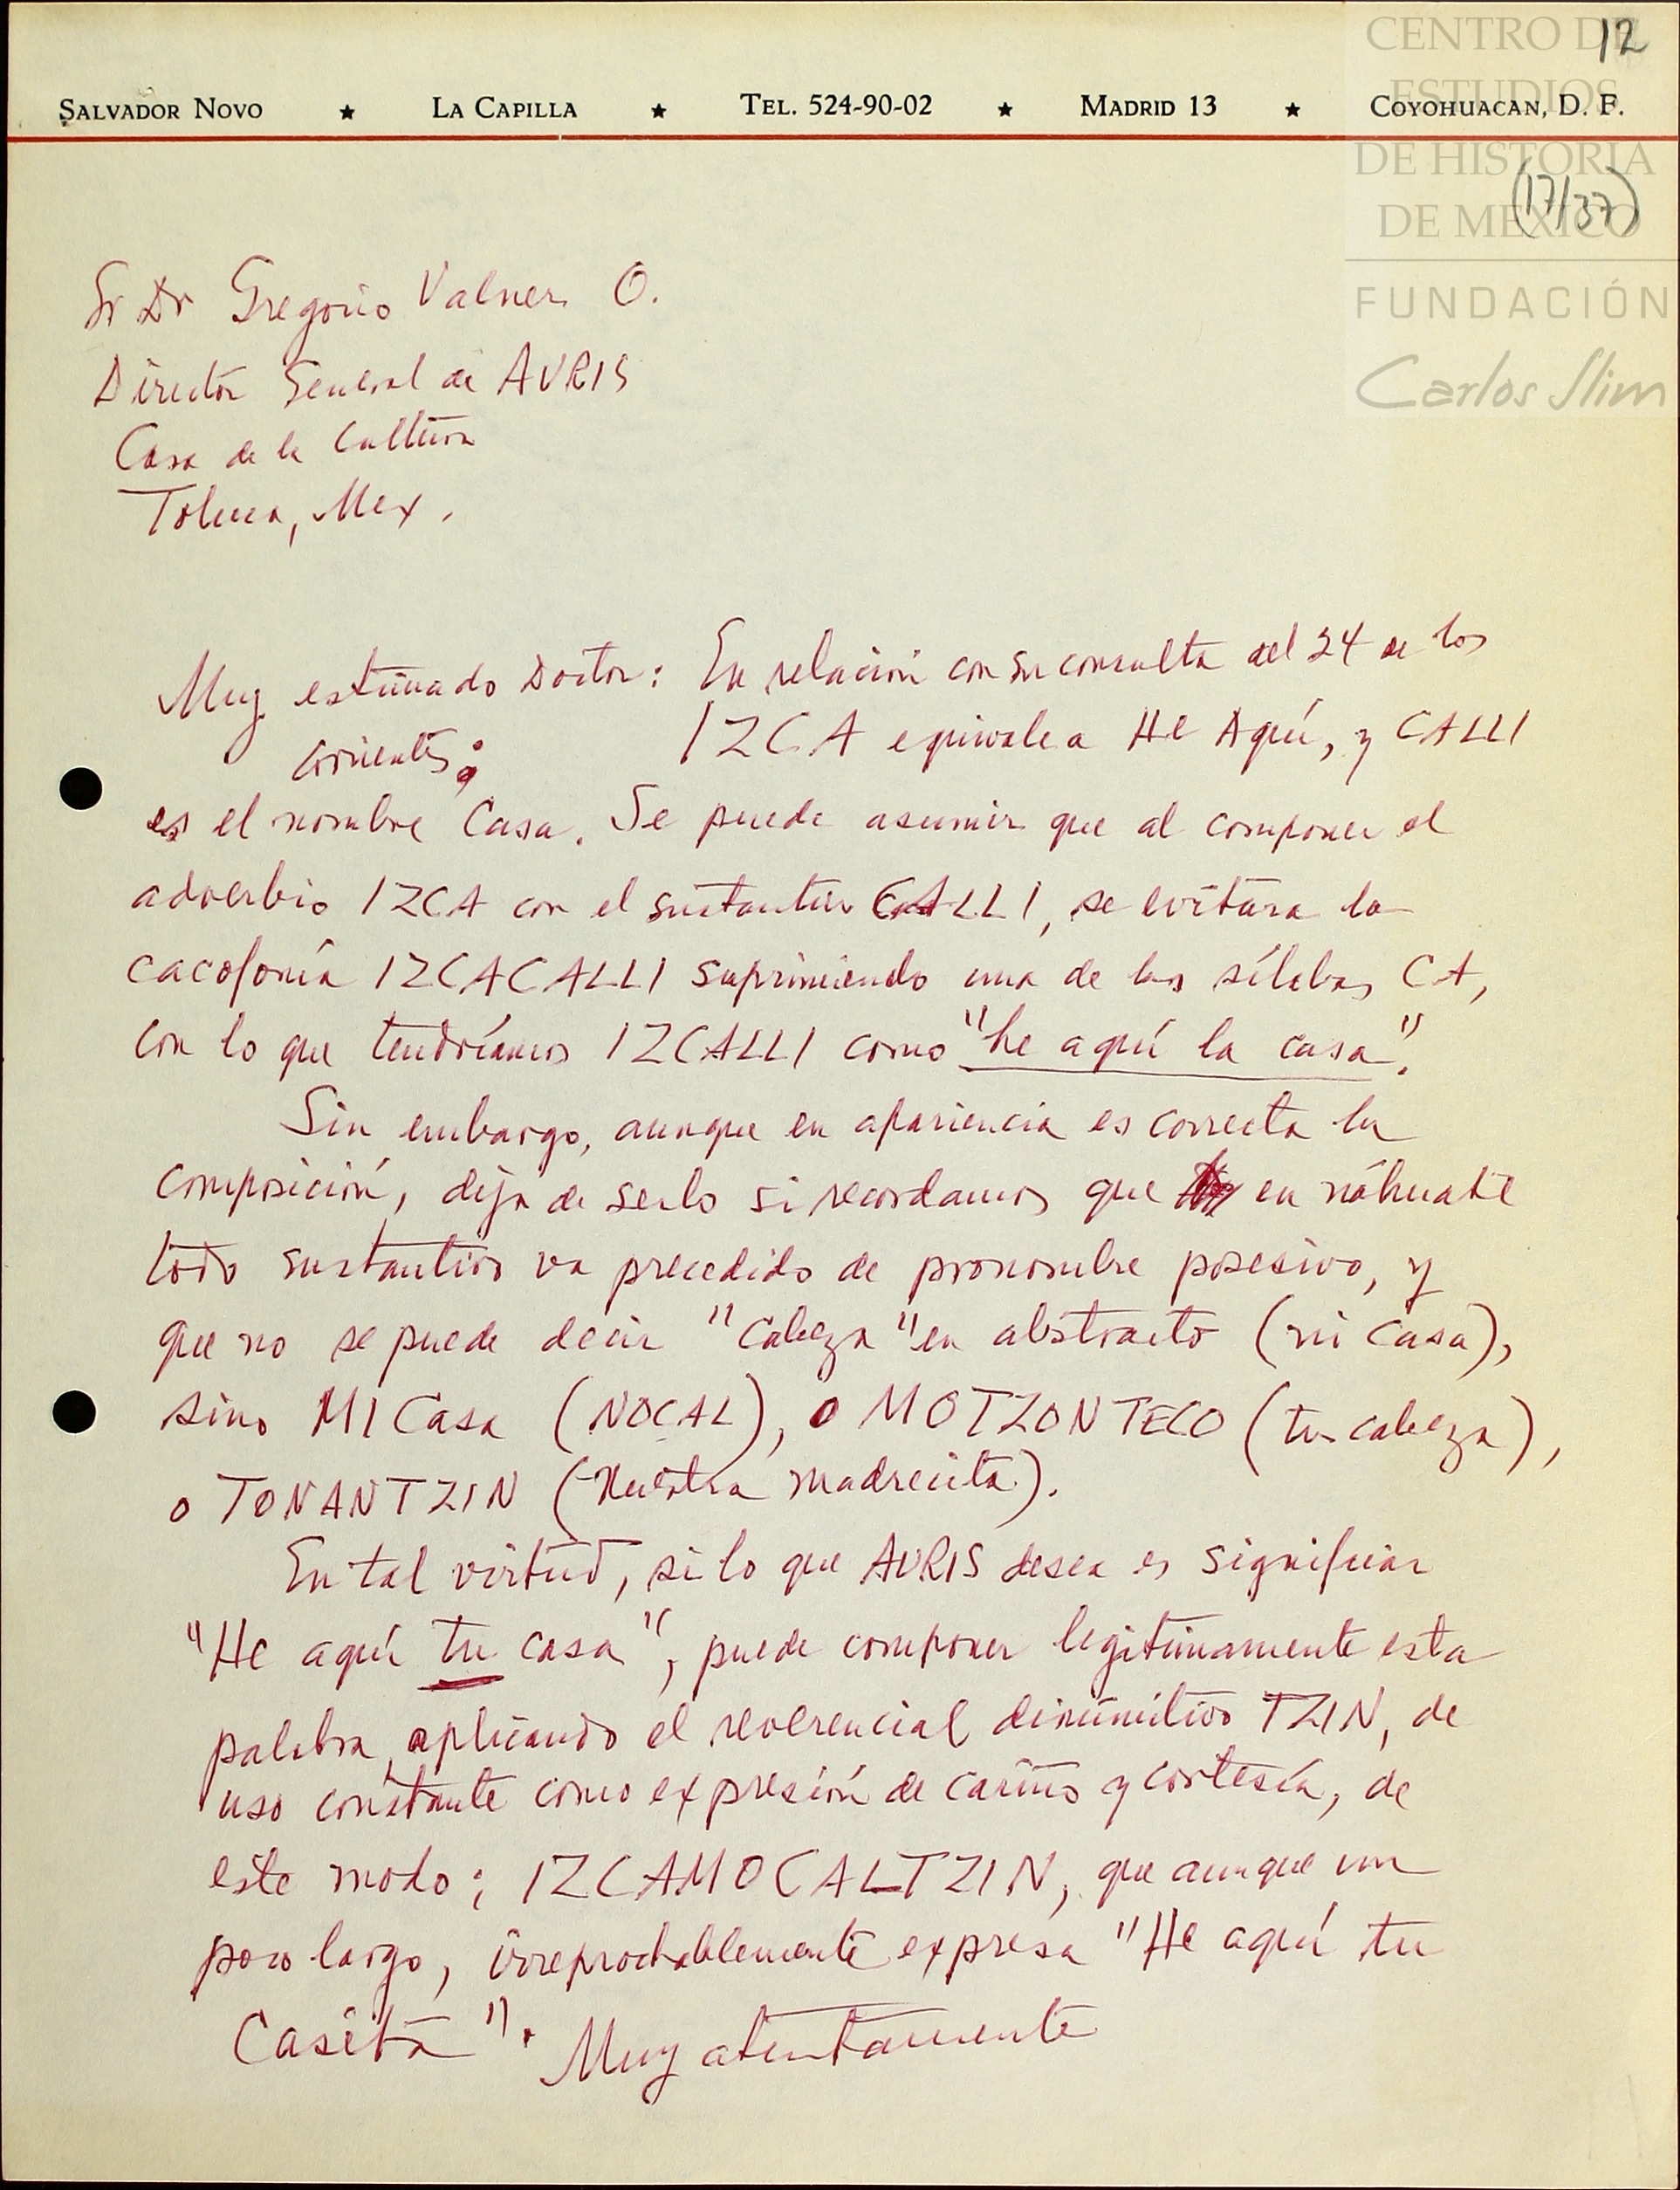 12
SALVADOR NOVO ★ LA CAPILLA ★ TEL. 524-90-02 ★ MADRID 13 ★ COYOHUACAN, D. F.
CENTRO DE
ESTUDIOS
DE HISTORIA
DE MÉXICO
(17/37)
FUNDACIÓN
Carlos Slim
Sr Dr Gregorio Valner O.
Director General de AURIS
Casa de la Cultura
Toluca, Mex.
Muy estimado Doctor: En relación con su consulta del 24 de los
corrientes: IZCA equivale a He Aquí, y CALLI
es el nombre Casa. Se puede asumir que al componer el
adverbio IZCA con el sustantivo CALLI, se evitara la
cacofonía IZCACALLI suprimiendo una de las sílabas CA,
con lo que tendríamos IZCALLI como "he aquí la casa".
Sin embargo, aunque en apariencia es correcta la
composición, deja de serlo si recordamos que en náhuatl
todo sustantivo va precedido de pronombre posesivo, y
que no se puede decir "Cabeza" en abstracto (ni casa),
sino MI Casa (NOCAL), o MOTZONTECO (tu cabeza),
o TONANTZIN (Nuestra madrecita).
En tal virtud, si lo que AURIS desea es significar
"He aquí tu casa", puede componer legítimamente esta
palabra, aplicando el reverencial diminutivo TZIN, de
uso constante como expresión de cariño y cortesía, de
este modo: IZCAMOCALTZIN, que aunque un
poco largo, irreprochablemente expresa "He aquí tu
Casita". Muy atentamente